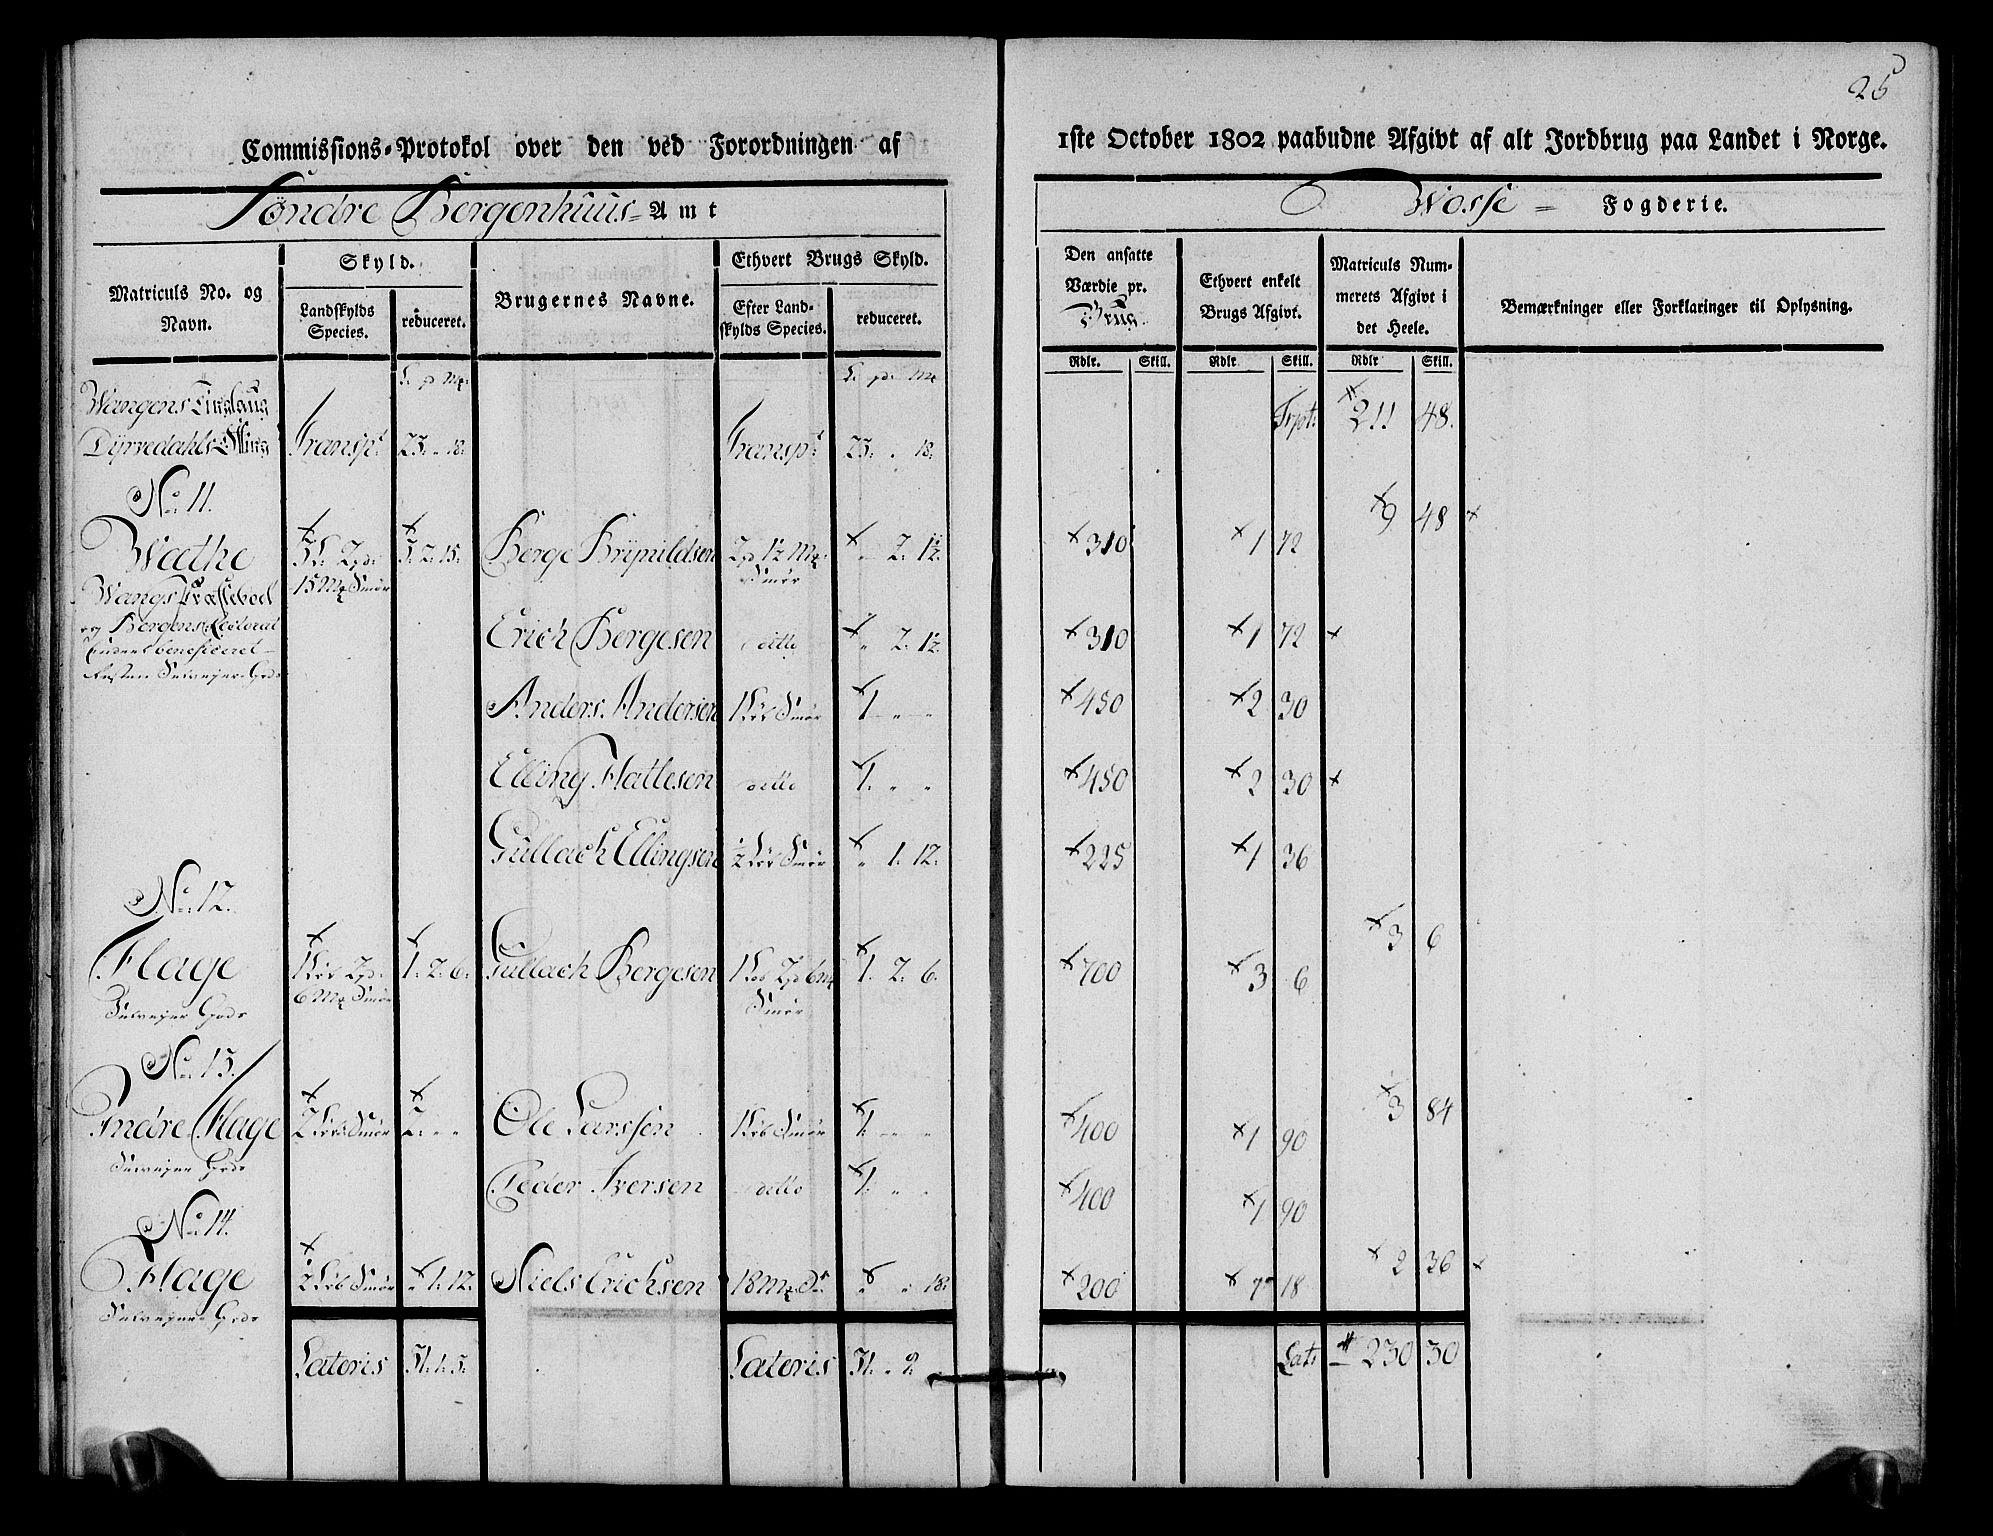 25
Commissions-Protokol over den ved Forordningen af
1ste October 1802 paabudne Afgivt af alt Jordbrug paa Landet i Norge.
Söndre Bergenhuus = Amt
Wosse = Fogderie.
Matriculs No. og Navn.
Skyld.
Landskylds Species.
reduceret.
Brugernes Navne.
Ethvert Brugs Skyld.
Efter Landskylds Species.
reduceret.
Den ansatte Værdie pr. Brug.
Ethvert enkelt Brugs Afgivt.
Matriculs Nummerets Afgivt i det Heele.
Bemærkninger eller Forklaringer til Oplysning.
Rdlr. Skill. Rdlr Skill. Rdlr Skill.
Wangens Tinglaug
Trpt: 211 48.
Dyrvedahls Otting Transpt 23: " 18: Transpt 23: " 18:
No 11.
9 48
Wæthe 3 L. 2 pd: 3: 2: 15: Berge Brynildsen 2 pd 12 mk " 2: 12: 310 1 72
15 mk Smör Smör
Wangs Præstebol
og Bergens Lectorat Erich Bergesen ditto " 2: 12: 310 1 72
beneficeret
Selvejer Gods
Anders Andersen 1 Löb Smör 1: " " 450 2 30
Elling Hallesen ditto 1: " " 450 2 30
Gullach Ellingsen ½ Löb Smör " 1: 12: 225 1 36
No 12.
3 6
Flage 1 Löb 2 pd: 1: 2: 6: Gullach Bergesen 1 Löb 2 pd 6 mk 1: 2: 6: 700 3 6
6 mk Smör Smör
Selvejer Gods
No 13.
3 84
Indre Flage 2 Löb Smör 2: " " Ole Larssen 1 Löb Smör 1: " " 400 1 90
Selvejer Gods
Peder Iversen ditto 1: " " 400 1 90
No 14.
2 36
Flage ½ Löb Smör " 1: 12: Niels Erichsen 18 mk Do " " 18: 200 18
Selvejer Gods
Lateris 31: 1: 3: Lateris 31: " 9: Lat: 230 30